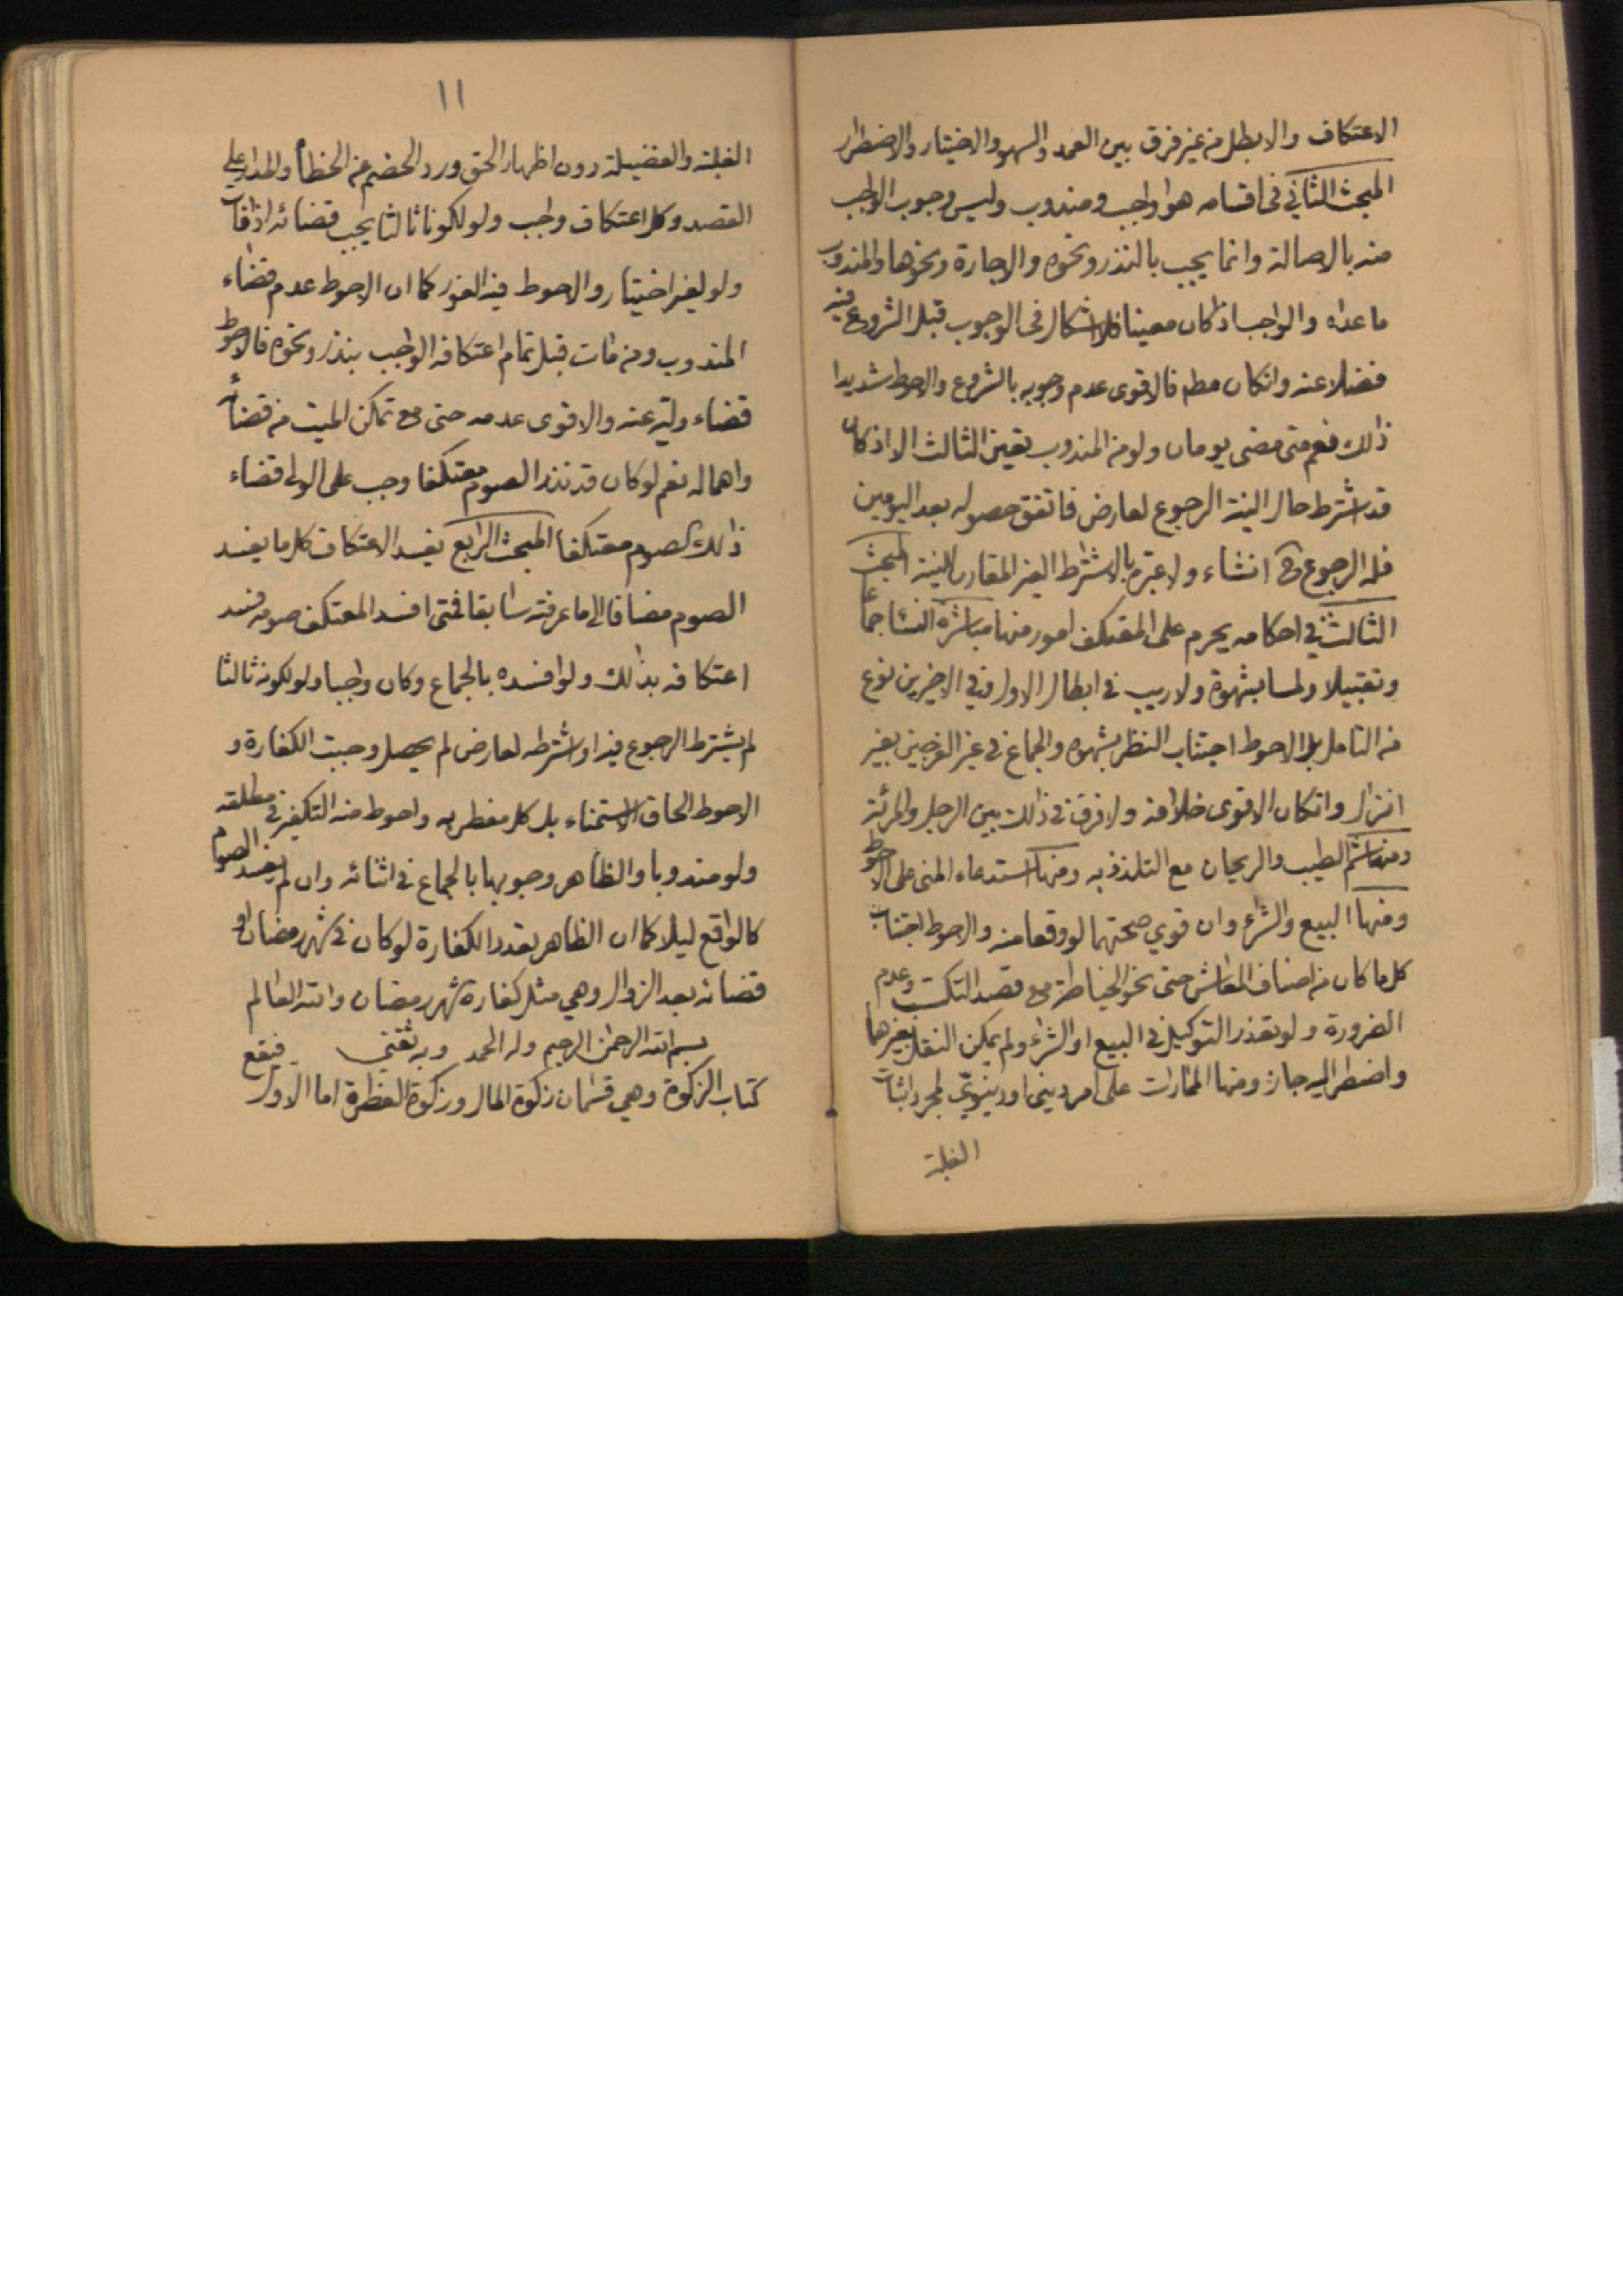 الاعتكاف والا بطل من غير فرق بين العمد والسهو والاختيار والاضطرار
المبحث الثاني في اقسامه هو واجب ومندوب وليس وجوب الواجب
منه بالاصالة وانما يجب بالنذر ونحوه والاجارة ونحوها والمندوب
ما عداه والواجب اذا كان معينا فلا اشكال في الوجوب قبل الشروع فيه
فضلا عنه وانكان مطم فالاقوى عدم وجوبه بالشروع والاحوط شديدا
ذلك نعم متى مضى يومان ولو من المندوب تعين الثالث الا اذ كان
قد اشترط حال النية الرجوع لعارض فاتفق حصوله بعد اليومين
فله الرجوع ح انشاء ولا عبرة بالاشتراط الغير المقارن للنية المبحث
الثالث في احكامه يحرم على المعتكف امور منها مباشرة النساء جماعا
وتقبيلا ولمسا بشهوة ولا ريب في ابطال الاول وفي الاخيرين نوع
من التامل بل الاحوط اجتناب النظر بشهوه والجماع في غير الفرجين بغير
انزال وانكان الاقوى خلافه ولا فرق في ذلك بين الرجل والمرئة
ومنها شم الطيب والريحان مع التلذذ به ومنها استدعاء المنى على الاحوط
ومنها البيع والشراء وان قوي صحتهما لو وقعا منه والاحوط اجتناب
كل ما كان من اصناف المعاش حتى نحو الخياطة مع قصد التكسب وعدم
الضرورة ولو تعذر التوكيل في البيع او الشراء ولم يمكن النقل بغيرها
واضطر اليه جاز ومنها الممارات على امر ديني او دينويّ لمجرد اثبات
الغلبة
١١
الغلبة والفضيلة دون اظهار الحق ورد الخصم عن الخطأ والمدار على
القصد وكل اعتكاف واجب ولو لكونه ثالثا يجب قضائه اذا فات
ولو لغير اختيار والاحوط فيه الفور كما ان الاحوط عدم قضاء
المندوب ومن مات قبل تمام اعتكافه الواجب بنذر ونحوه فالاحوط
قضاء وليه عنه والاقوى عدمه حتى مع تمكن الميت من قضائه
واهماله نعم لو كان قد نذر الصوم معتكفا وجب على الولى قضاء
ذلك الصوم معتكفا المبحث الرابع يفسد الاعتكاف كل ما يفسد
الصوم مضافا الى ما عرفته سابقا فمتى افسد المعتكف صومه فسد
اعتكافه بذلك ولو افسده بالجماع وكان واجبا ولو لكونه ثالثا
لم يشترط الرجوع فيه او اشترطه لعارض لم يحصل وجبت الكفارة و
الاحوط الحاق الاستمناء بل كل مفطر به واحوط منه التكفير في مطلقه
ولو مندوبا والظاهر وجوبها بالجماع في اثنائه وان لم يفسد الصوم
كالواقع ليلا كما ان الظاهر تعدد الكفارة لو كان في شهر رمضان او
قضائه بعد الزوال وهي مثل كفارة شهر رمضان والله العالم
بسم الله الرحمن الرحيم وله الحمد وبه ثقتي
كتاب الزكوة وهي قسمان زكوة المال وزكوة الفطرة اما الاول فيقع